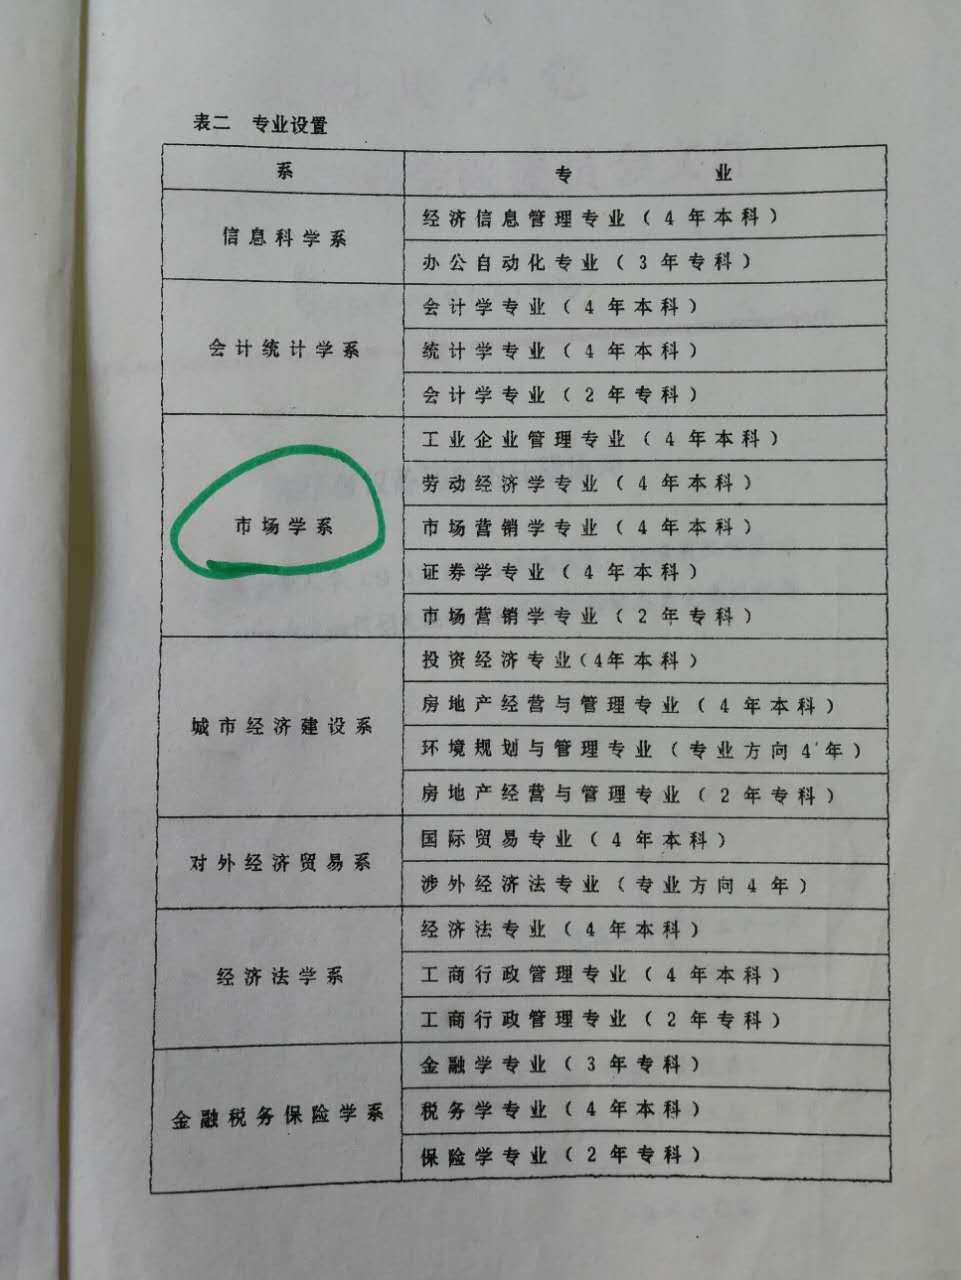 表二 专业设置
系 专 业
信息科学系
经济信息管理专业(4年本科)
办公自动化专业(3年专科)
会计统计学系
会计学专业(4年本科)
统计学专业(4年本科)
会计学专业(2年专科)
市场学系
工业企业管理专业(4年本科)
劳动经济学专业(4年本科)
市场营销学专业(4年本科)
证券学专业(4年本科)
市场营销学专业(2年专科)
城市经济建设系
投资经济专业(4年本科)
房地产经营与管理专业(4年本科)
环境规划与管理专业(专业方向4年)
房地产经营与管理专业(2年专科)
对外经济贸易系
国际贸易专业(4年本科)
涉外经济法专业(专业方向4年)
经济法学系
经济法专业(4年本科)
工商行政管理专业(4年本科)
工商行政管理专业(2年专科)
金融税务保险学系
金融学专业(3年专科)
税务学专业(4年本科)
保险学专业(2年专科)